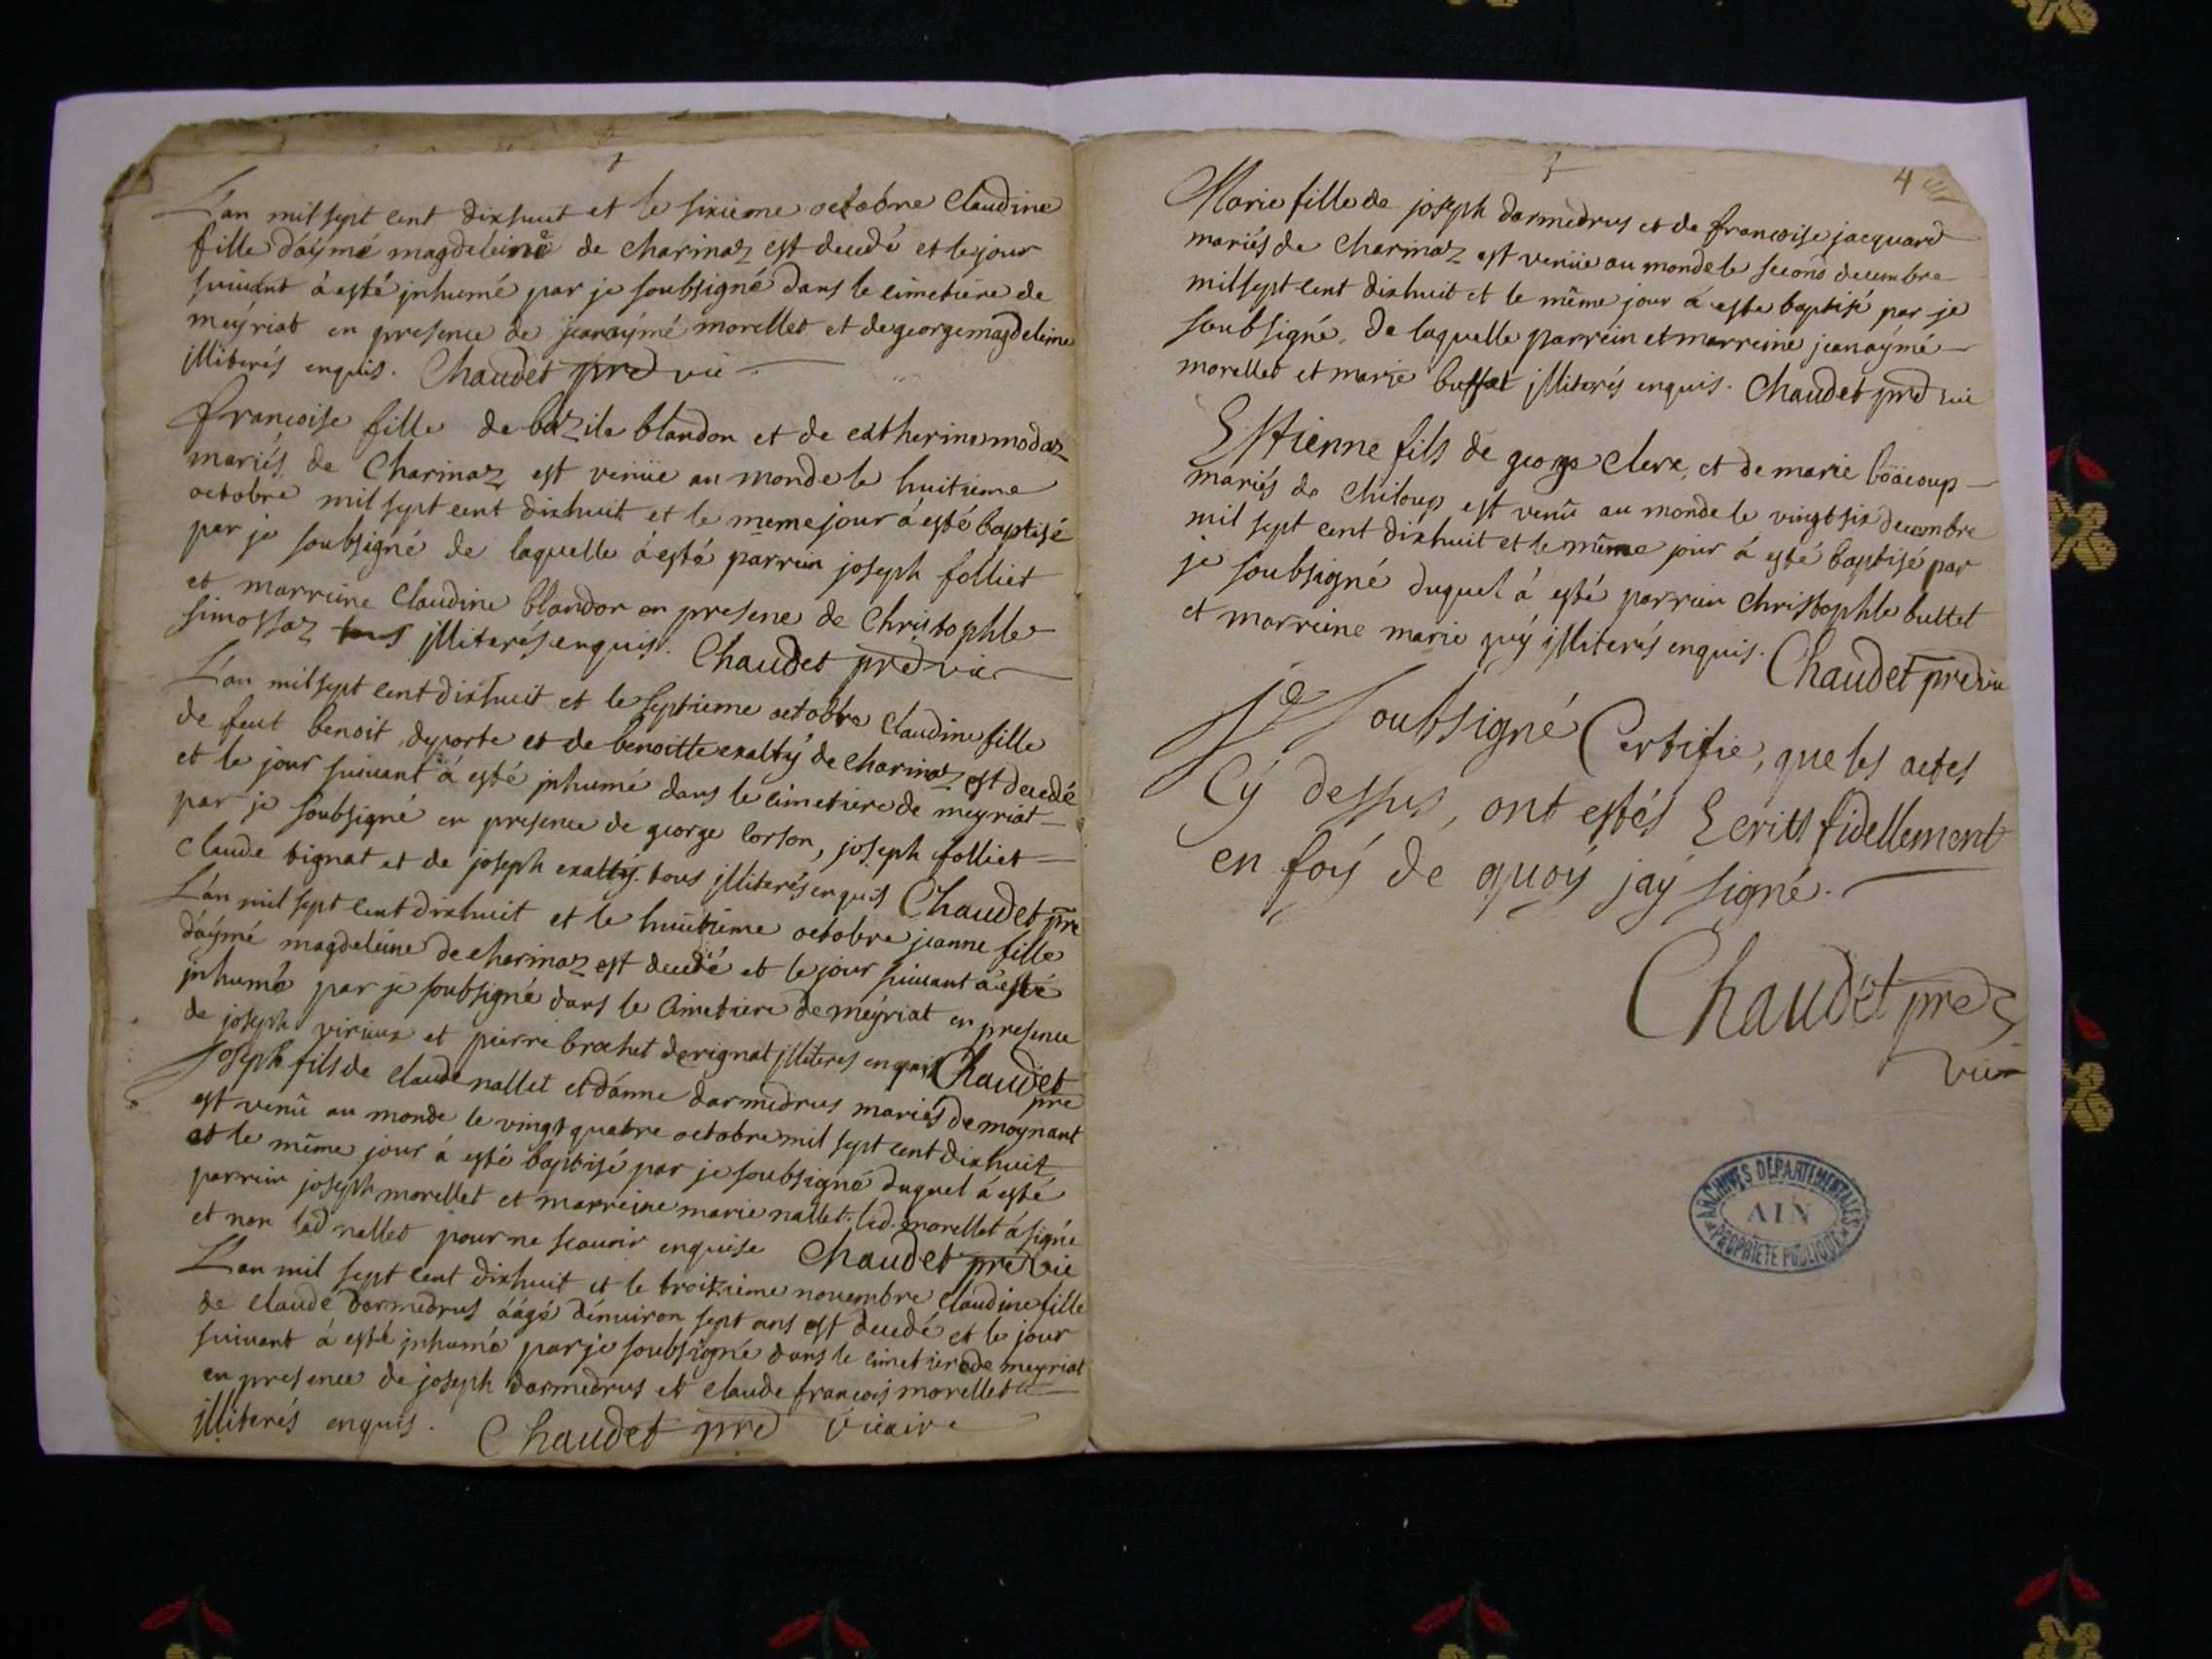 L'an mil sept cent dixhuit et le sixieme octobre Claudine
fille d'aÿmé magdeleine de charinaz est decedé et le jour
suivant á esté jnhumé par je soubsigné dans le cimetiere de
meÿriat en presence de jean aÿmé morellet et de george magdeleine
jlliterés enquis. Chaudet pre vic
francoise fille de bazile blandon et de catherine modaz
mariés de Charinaz est venüe au monde le huitieme
octobre mil sept cent dixhuit et le meme jour á esté baptisé
par je soubsigné de laquelle á esté parrein joseph folliet
et marreine Claudine blandon en presene de Christophle
simossaz tous jlliterés enquis. Chaudet pre vic
L'an mil sept cent dixhuit et le septieme octobre Claudine fille
de feut benoit dyporte et de benoitte exaltÿ de charinaz est decedé
et le jour suivant á esté jnhumé dans le cimetiere de meyriat
par je soubsigné en presence de george corson, joseph folliet
Claude tignat et de joseph exaltÿ. tous jlliterés enquis Chaudet pre
L'an mil sept cent dixhuit et le huitieme octobre jeanne fille
d'aÿmé magdeleine de charinaz est decedé et le jour suivant á esté
jnhumé par je soubsigné dans le Cimetiere de meÿriat en presence
de joseph virieux et pierre brochet de rignat jlliteres enquis Chaudet
pre
Joseph fils de claude nallet et d'anne darmedrus mariés de moÿnant
est venû au monde le vingt quatre octobre mil sept cent dixhuit
et le même jour á esté baptisé par je soubsigné duquel á esté
parrein joseph morellet et marreine marie nallet. led. morellet á signé
et non lad nallet pour ne scauoir enquise Chaudet pre vic
L'an mil sept cent dixhuit et le troizieme novembre Claudine fille
de claude darmedrus áágé d'environ sept ans est decedé et le jour
suivant á esté jnhumé par je soubsigné dans le cimetiere de meyriat
en presence de joseph darmedrus et claude francois morellet
jlliterés enquis. Chaudet pre vicaire
4
Marie fille de joseph darmedrus et de francoise jacquard
mariés de Charinaz est venüe au monde le second decembre
mil sept cent dixhuit et le même jour á esté baptisé par je
soubsigné, de laquelle parrein et marreine jean aÿmé
morellet et marie buffet jlliterés enquis. Chaudet pre vic
Estienne fils de george Clerc, et de marie böäcoup
mariés de Chiloup est venû au monde le vingt six decembre
mil sept cent dixhuit et le même jour á esté baptisé par
je soubsigné duquel á esté parrein Christophle buttet
et marreine marie guÿ jlliterés enquis. Chaudet pre vic
Je Soubsigné Certifie, que les actes
Cÿ dessus, ont estés Ecrits fidellement
en foÿ de quoÿ jaÿ signé.
Chaudet pre
vic
ARCHIVES DÉPARTEMENTALES
AIN
PROPRIÉTÉ PUBLIQUE